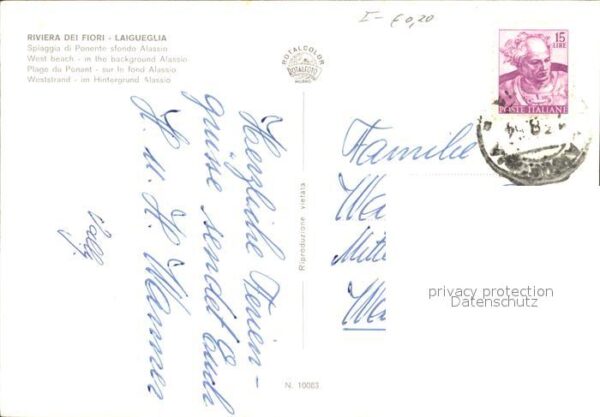 I - € 0,20
RIVIERA DEI FIORI - LAIGUEGLIA
Spiaggia di Ponente sfondo Alassio
West beach - in the background Alassio
Plage du Ponant - sur le fond Alassio
Weststrand - im Hintergrund Alassio
ROTALCOLOR
ROTALFOTO
MILANO
15
LIRE
POSTE ITALIANE
Herzliche Ferien-
grüsse sendet Euch
H. u. H. Wammer
Riproduzione vietata
Familie
Mitte
privacy protection
Datenschutz
N. 10083